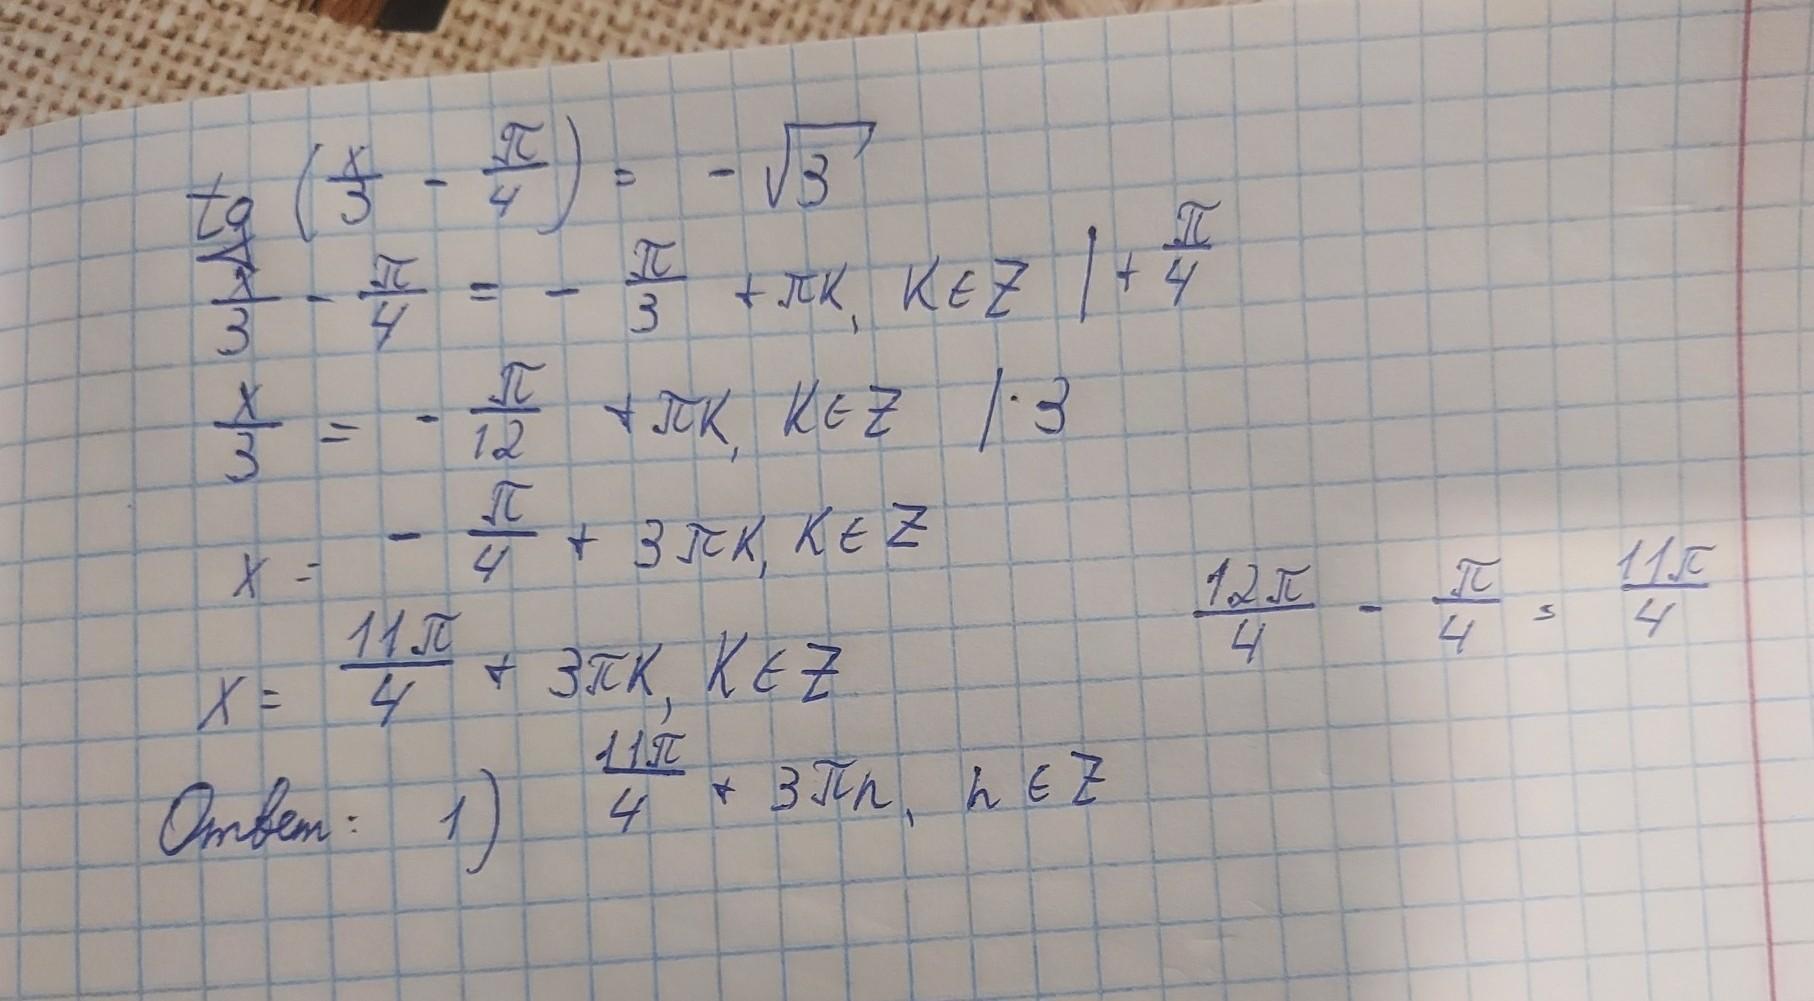 tg (x/3 - π/4) = - √3
x/3 - π/4 = - π/3 + πk, k ∈ Z | + π/4
x/3 = - π/12 + πk, k ∈ Z | · 3
x = - π/4 + 3πk, k ∈ Z
12π/4 - π/4 = 11π/4
x = 11π/4 + 3πk, k ∈ Z
Ответ: 1) 11π/4 + 3πn, n ∈ Z